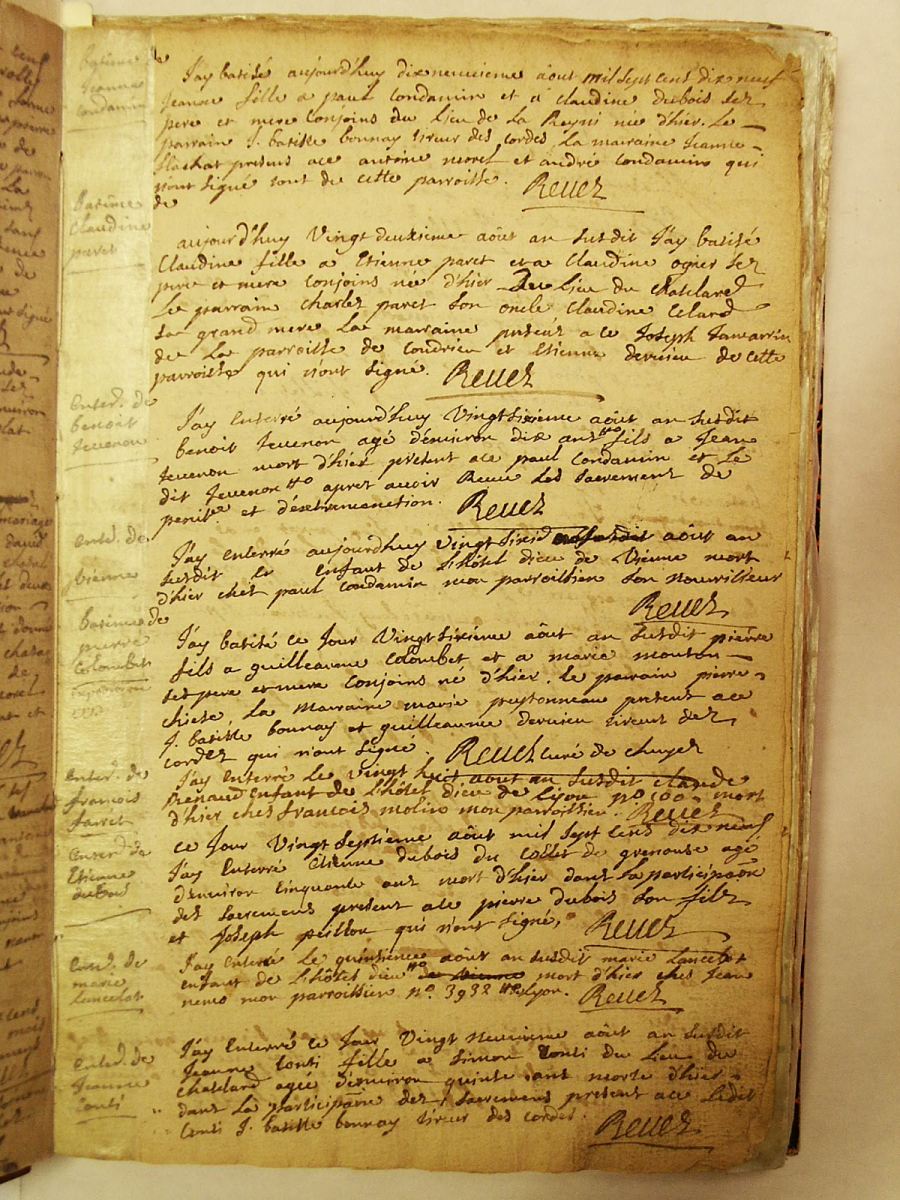 batême
Jeanne
Condamin
J'ay batisé aujourd'huy dixneuvieme aôut mil sept cens dix neuf
Jeanne fille a paul Condamin et a Claudine dubois ses
pere et mere Conjoins du Lieu de La née d'hier. Le
parrain J. batiste bonnay tireur des cordes, La marraine Jeanne
flachat presens a ce antoine morel et andré Condamin qui
n'ont signé sont de cette parroisse. Reuez
de
Batême
Claudine
paret
aujourd'huy Vingt deuxieme aôut an susdit J'ay batisé
Claudine fille a Etienne paret et a Claudine ogier ses
pere et mere Conjoins né d'hier Du Lieu du Chatelard
Le parrain Charles paret son oncle Claudine Celard
sa grand mere La marraine presens a ce Joseph Jamarrin
de La parroisse de Condrieu et Etienne dervieu de cette
parroisse qui n'ont signé. Reuez
Enter. de
benoit
Tevenon
J'ay Enterré aujourd'huy Vingtsixieme aôut an susdit
benoit Tevenon agé d'environ dix ans fils a Jean
Tevenon mort d'hier present a ce paul Condamin et Le
dit Tevenon apres avoir Receu Les sacremens de
penit.ce et d'extremonction. Reuez
Enter. de
vienne
J'ay Enterré aujourdhuy Vingtsixie aôut an
susdit un Enfant de L'hôtel dieu de Vienne mort
d'hier ches paul Condamin mon parroissien son nourrisseur
Reuez
batême de
pierre
Colombet
J'ay batisé ce Jour Vingtsixieme aôut an susdit pierre
fils a guilleaume Colombet et a marie mouton
ses pere et mere Conjoins né d'hier. Le parrain pierre
chieze La Marraine marie peytonneau present a ce
J. batiste bonnay et guilleaume dervieu tireurs des
cordes qui n'ont signé. Reuez curé de chuyes
Enter. de
francois
farret
J'ay Enterré Le Vingt huit aôut an susdit Claude
Renaud Enfant de L'hôtel dieu de Lyon n.o 600 mort
d'hier ches francois molin mon parroissien. Reuez
Enter. de
Etienne
dubois
ce Jour Vingtseptieme aôut mil sept Cens dix neuf
J'ay Enterré Etienne dubois du Collet de grenouse agé
d'environ Cinquante ans mort d'hier dans La participaon
des sacremens present a ce pierre dubois son fils
et Joseph peillon qui n'ont signé, Reuez
Ent. de
marie
Lancelot
J'ay Enterré Le quinsieme aôut an susdit marie Lancelot
enfant de L'hôtel dieu de vienne mort d'hier ches Jean
nemo mon parroissien n.o 3932 Lyon. Reuez
Enter. de
Jeanne
Conti
J'ay Enterré ce Jour Vingt neuvieme aôut an susdit
Jeanne Conti fille a simon Conti du Lieu du
Chatelard agée d'environ quinse ans morte d'hier
dans La participaon des sacremens present a ce Ledit
Conti J. batiste bonnay tireur des cordes. Reuez